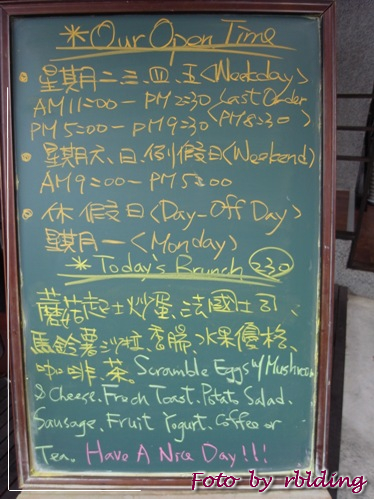 *Our Open Time
星期二.三.四.五<Weekday>
AM 11:00 - PM 2:30 Last Order
PM 5:00 - PM 9:30 <PM 8:30>
星期六、日、例假日<Weekend>
AM 9:00 - PM 5:00
休假日<Day-Off Day>
星期一<Monday>
*Today's Brunch 230
蘑菇起士炒蛋、法國吐司、
馬鈴薯沙拉、香腸、水果優格、
咖啡.茶. Scramble Eggs w/ Mushroom
& Cheese. French Toast. Potato Salad.
Sausage. Fruit Yogurt. Coffee or
Tea. Have A Nice Day!!!
Foto by rblding